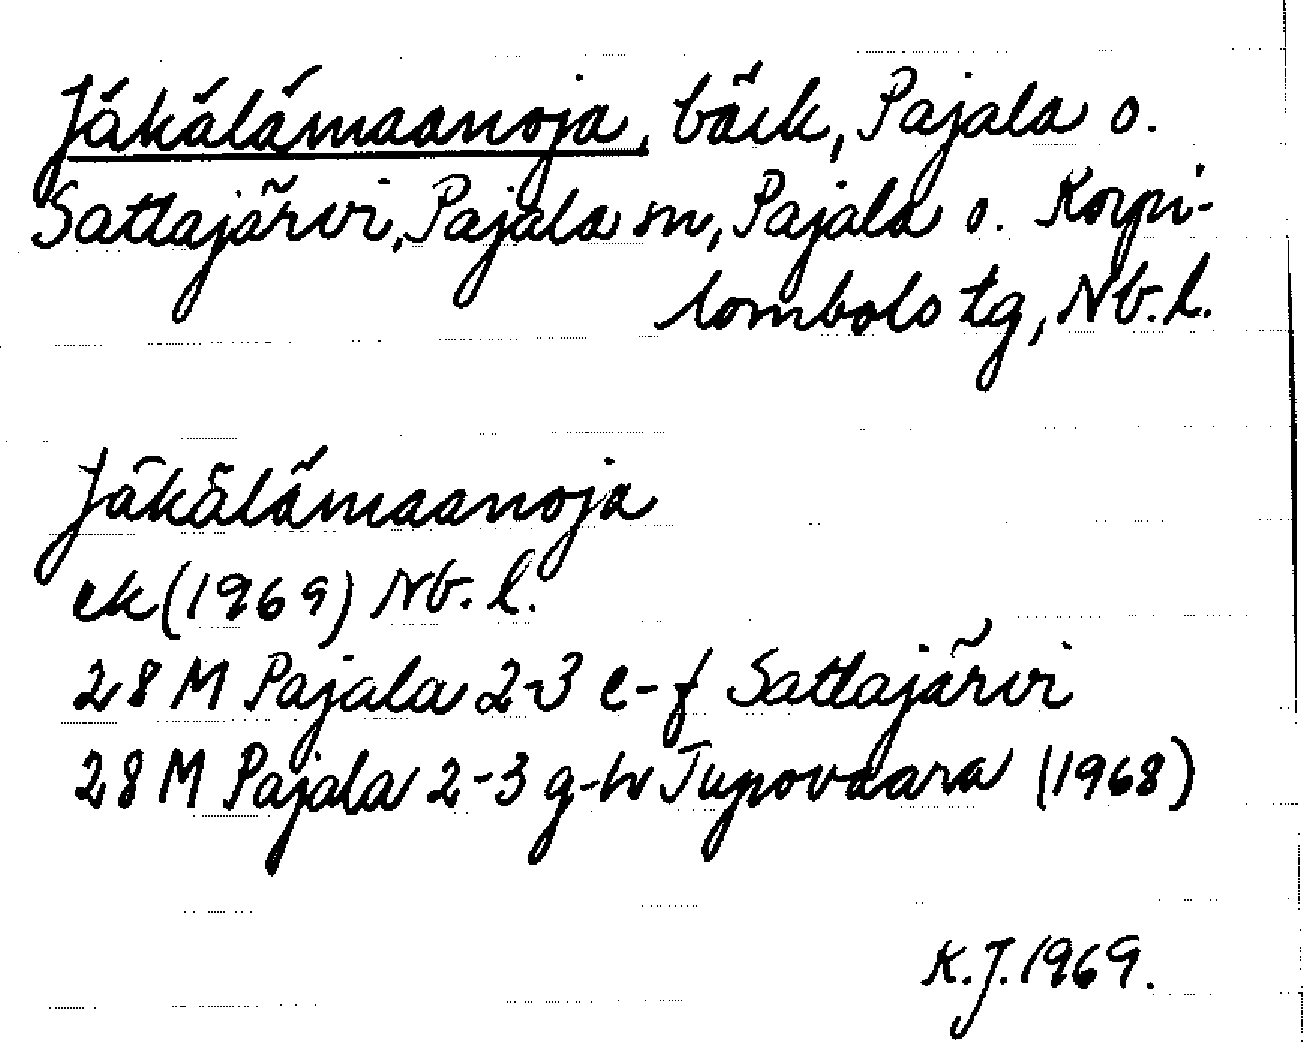 Jäkälämaanoja, bäck, Pajala o.
Sattajärvi, Pajala sn, Pajala o. Korpi-
lombolo tg, Nb.l.
Jäkälämaanoja
ek (1969) Nb.l.
28 M Pajala 2-3 e-f Sattajärvi
28 M Pajala 2-3 g-h Jupovaara (1968)
K.J. 1969.